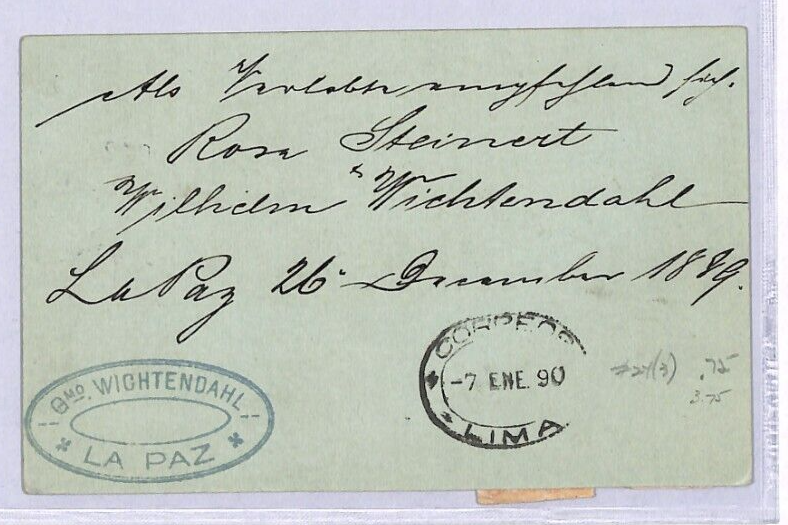 Als Verlobte empfehlend sich.
Rosa Steinert
& Wilhelm Wichtendahl
La Paz 26 December 1889.
GMO. WICHTENDAHL
LA PAZ
CORREOS
-7 ENE. 90
LIMA
.75
3.75